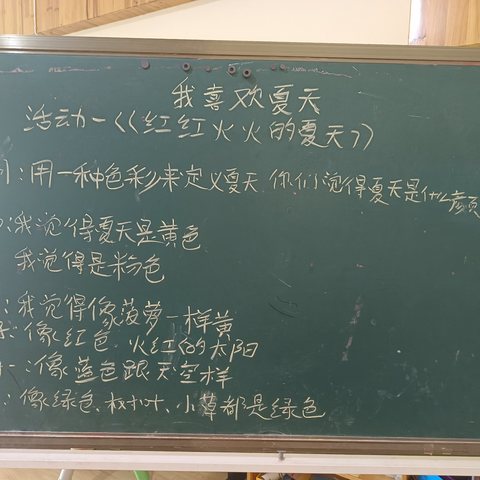 我喜欢夏天
活动一《《红红火火的夏天》》
:用一种色彩来定义夏天 你们觉得夏天是什么颜
:我觉得夏天是黄色
我觉得是粉色
:我觉得像菠萝一样黄
:像红色、火红的太阳
:像蓝色跟天空样
:像绿色、树叶、小草都是绿色